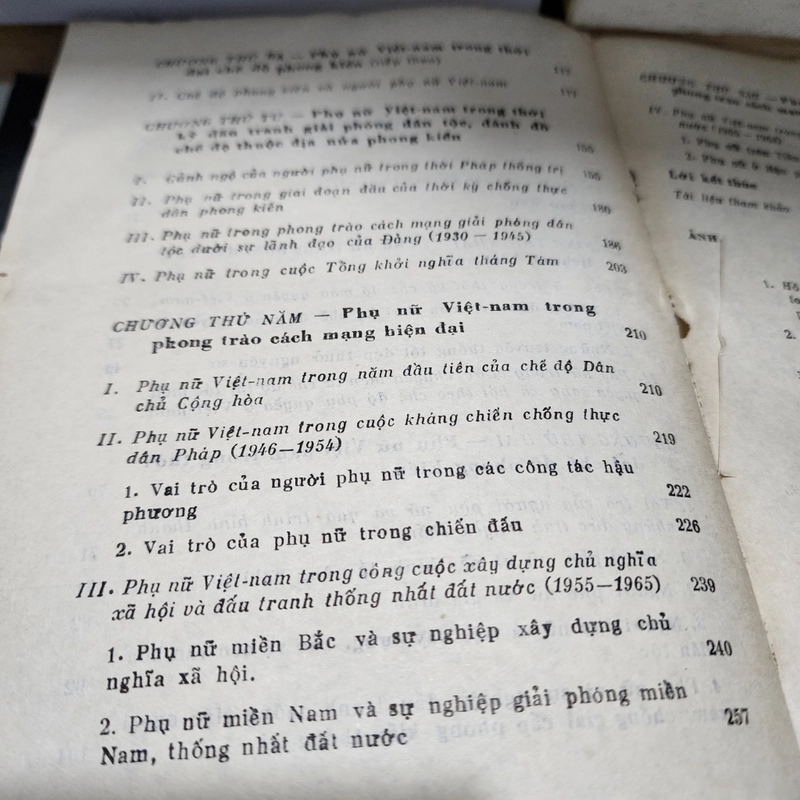 CHƯƠNG THỨ BA — Phụ nữ Việt-nam trong thời
đại chế độ phong kiến (tiếp theo)
II. Chế độ phong kiến và người phụ nữ Việt-nam
CHƯƠNG THỨ TƯ — Phụ nữ Việt-nam trong thời
kỳ đấu tranh giải phóng dân tộc, đánh đổ
chế độ thuộc địa nửa phong kiến 155
I. Cảnh ngộ của người phụ nữ trong thời Pháp thống trị 155
II. Phụ nữ trong giai đoạn đầu của thời kỳ chống thực
dân phong kiến 180
III. Phụ nữ trong phong trào cách mạng giải phóng dân
tộc dưới sự lãnh đạo của Đảng (1930 — 1945) 186
IV. Phụ nữ trong cuộc Tổng khởi nghĩa tháng Tám 203
CHƯƠNG THỨ NĂM — Phụ nữ Việt-nam trong
phong trào cách mạng hiện đại 210
I. Phụ nữ Việt-nam trong năm đầu tiên của chế độ Dân
chủ Cộng hòa 210
II. Phụ nữ Việt-nam trong cuộc kháng chiến chống thực
dân Pháp (1946—1954) 219
1. Vai trò của người phụ nữ trong các công tác hậu
phương 222
2. Vai trò của phụ nữ trong chiến đấu 226
III. Phụ nữ Việt-nam trong công cuộc xây dựng chủ nghĩa
xã hội và đấu tranh thống nhất đất nước (1955—1965) 239
1. Phụ nữ miền Bắc và sự nghiệp xây dựng chủ
nghĩa xã hội. 240
2. Phụ nữ miền Nam và sự nghiệp giải phóng miền
Nam, thống nhất đất nước 257
CHƯƠNG THỨ
phong trào cách mạng
IV. Phụ nữ Việt-nam
1. Phụ nữ
2. Phụ nữ ở
Lời kết thúc
Tài liệu tham khảo
ẢNH
1.
2.